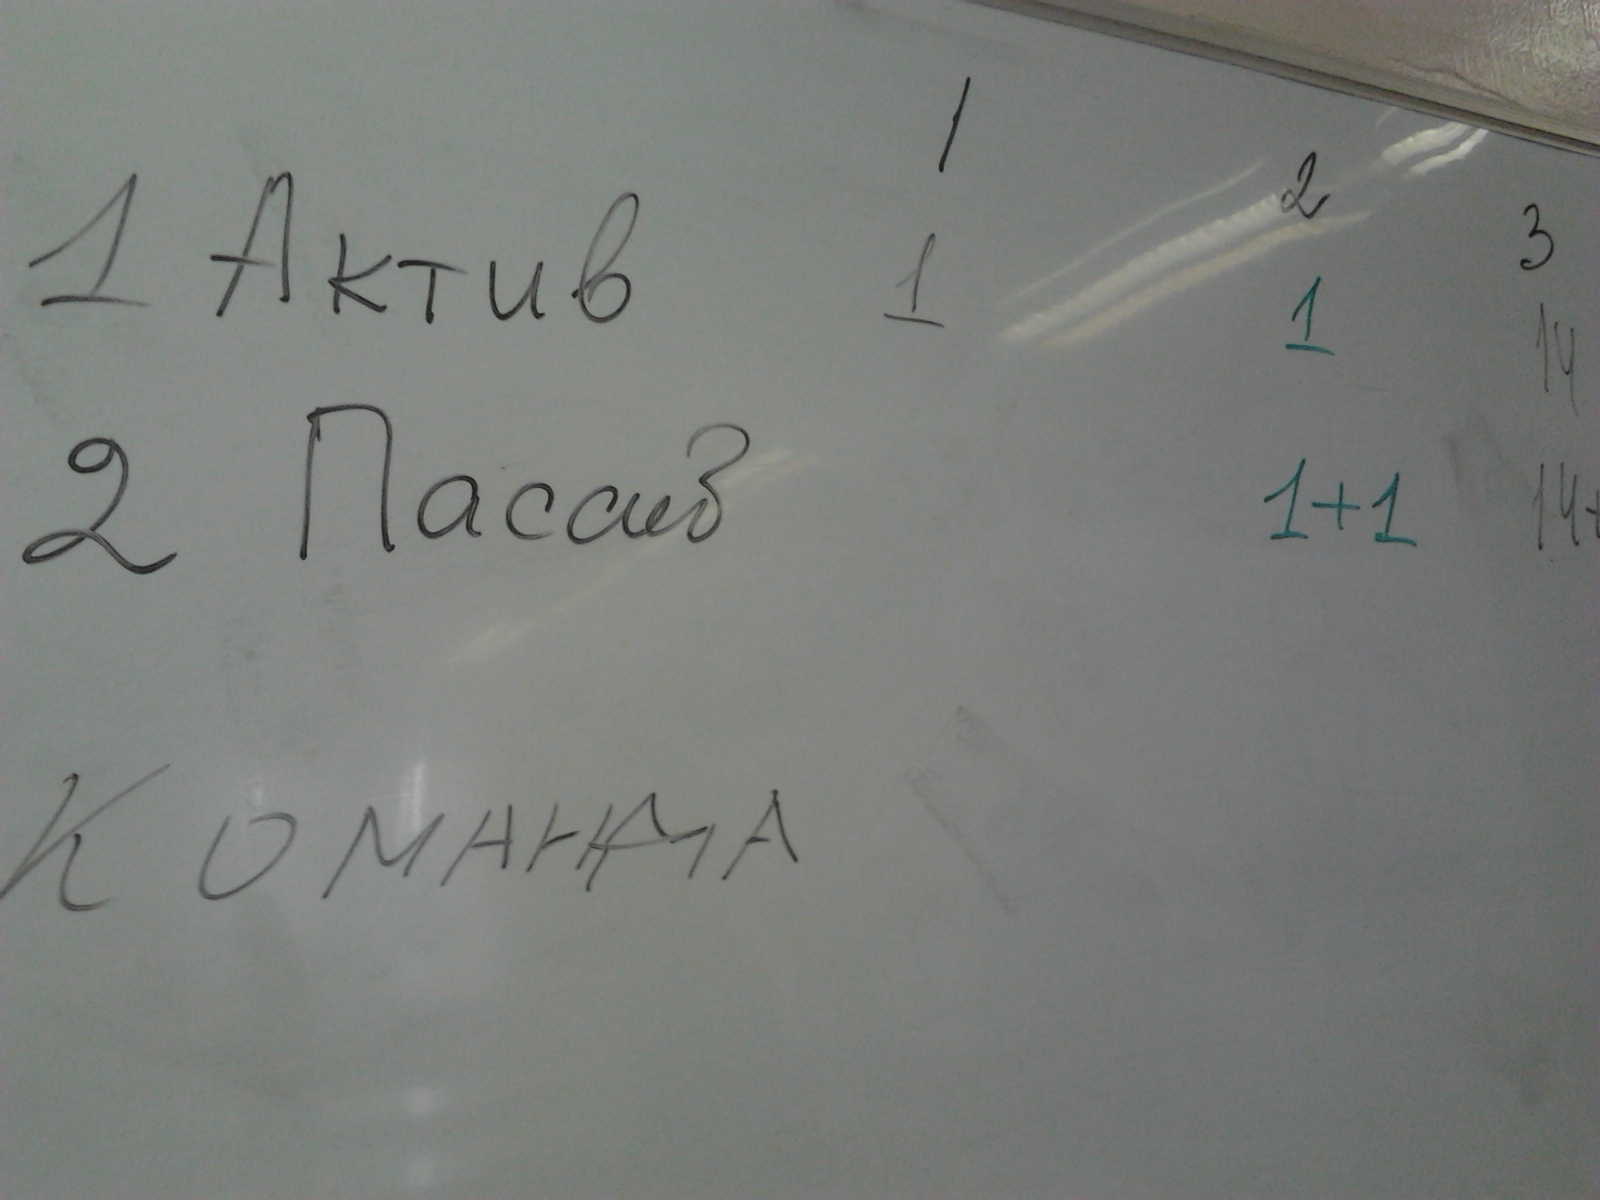 1 2 3
1 Актив 1 1 14
2 Пассив 1+1 14+
Команда